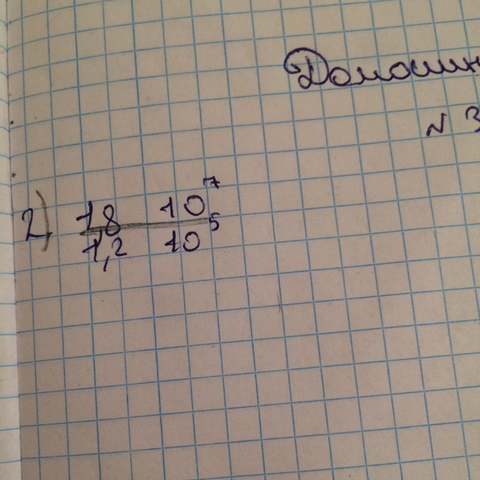 Домашн
N 3
2) 18 10⁷
1,2 10⁵